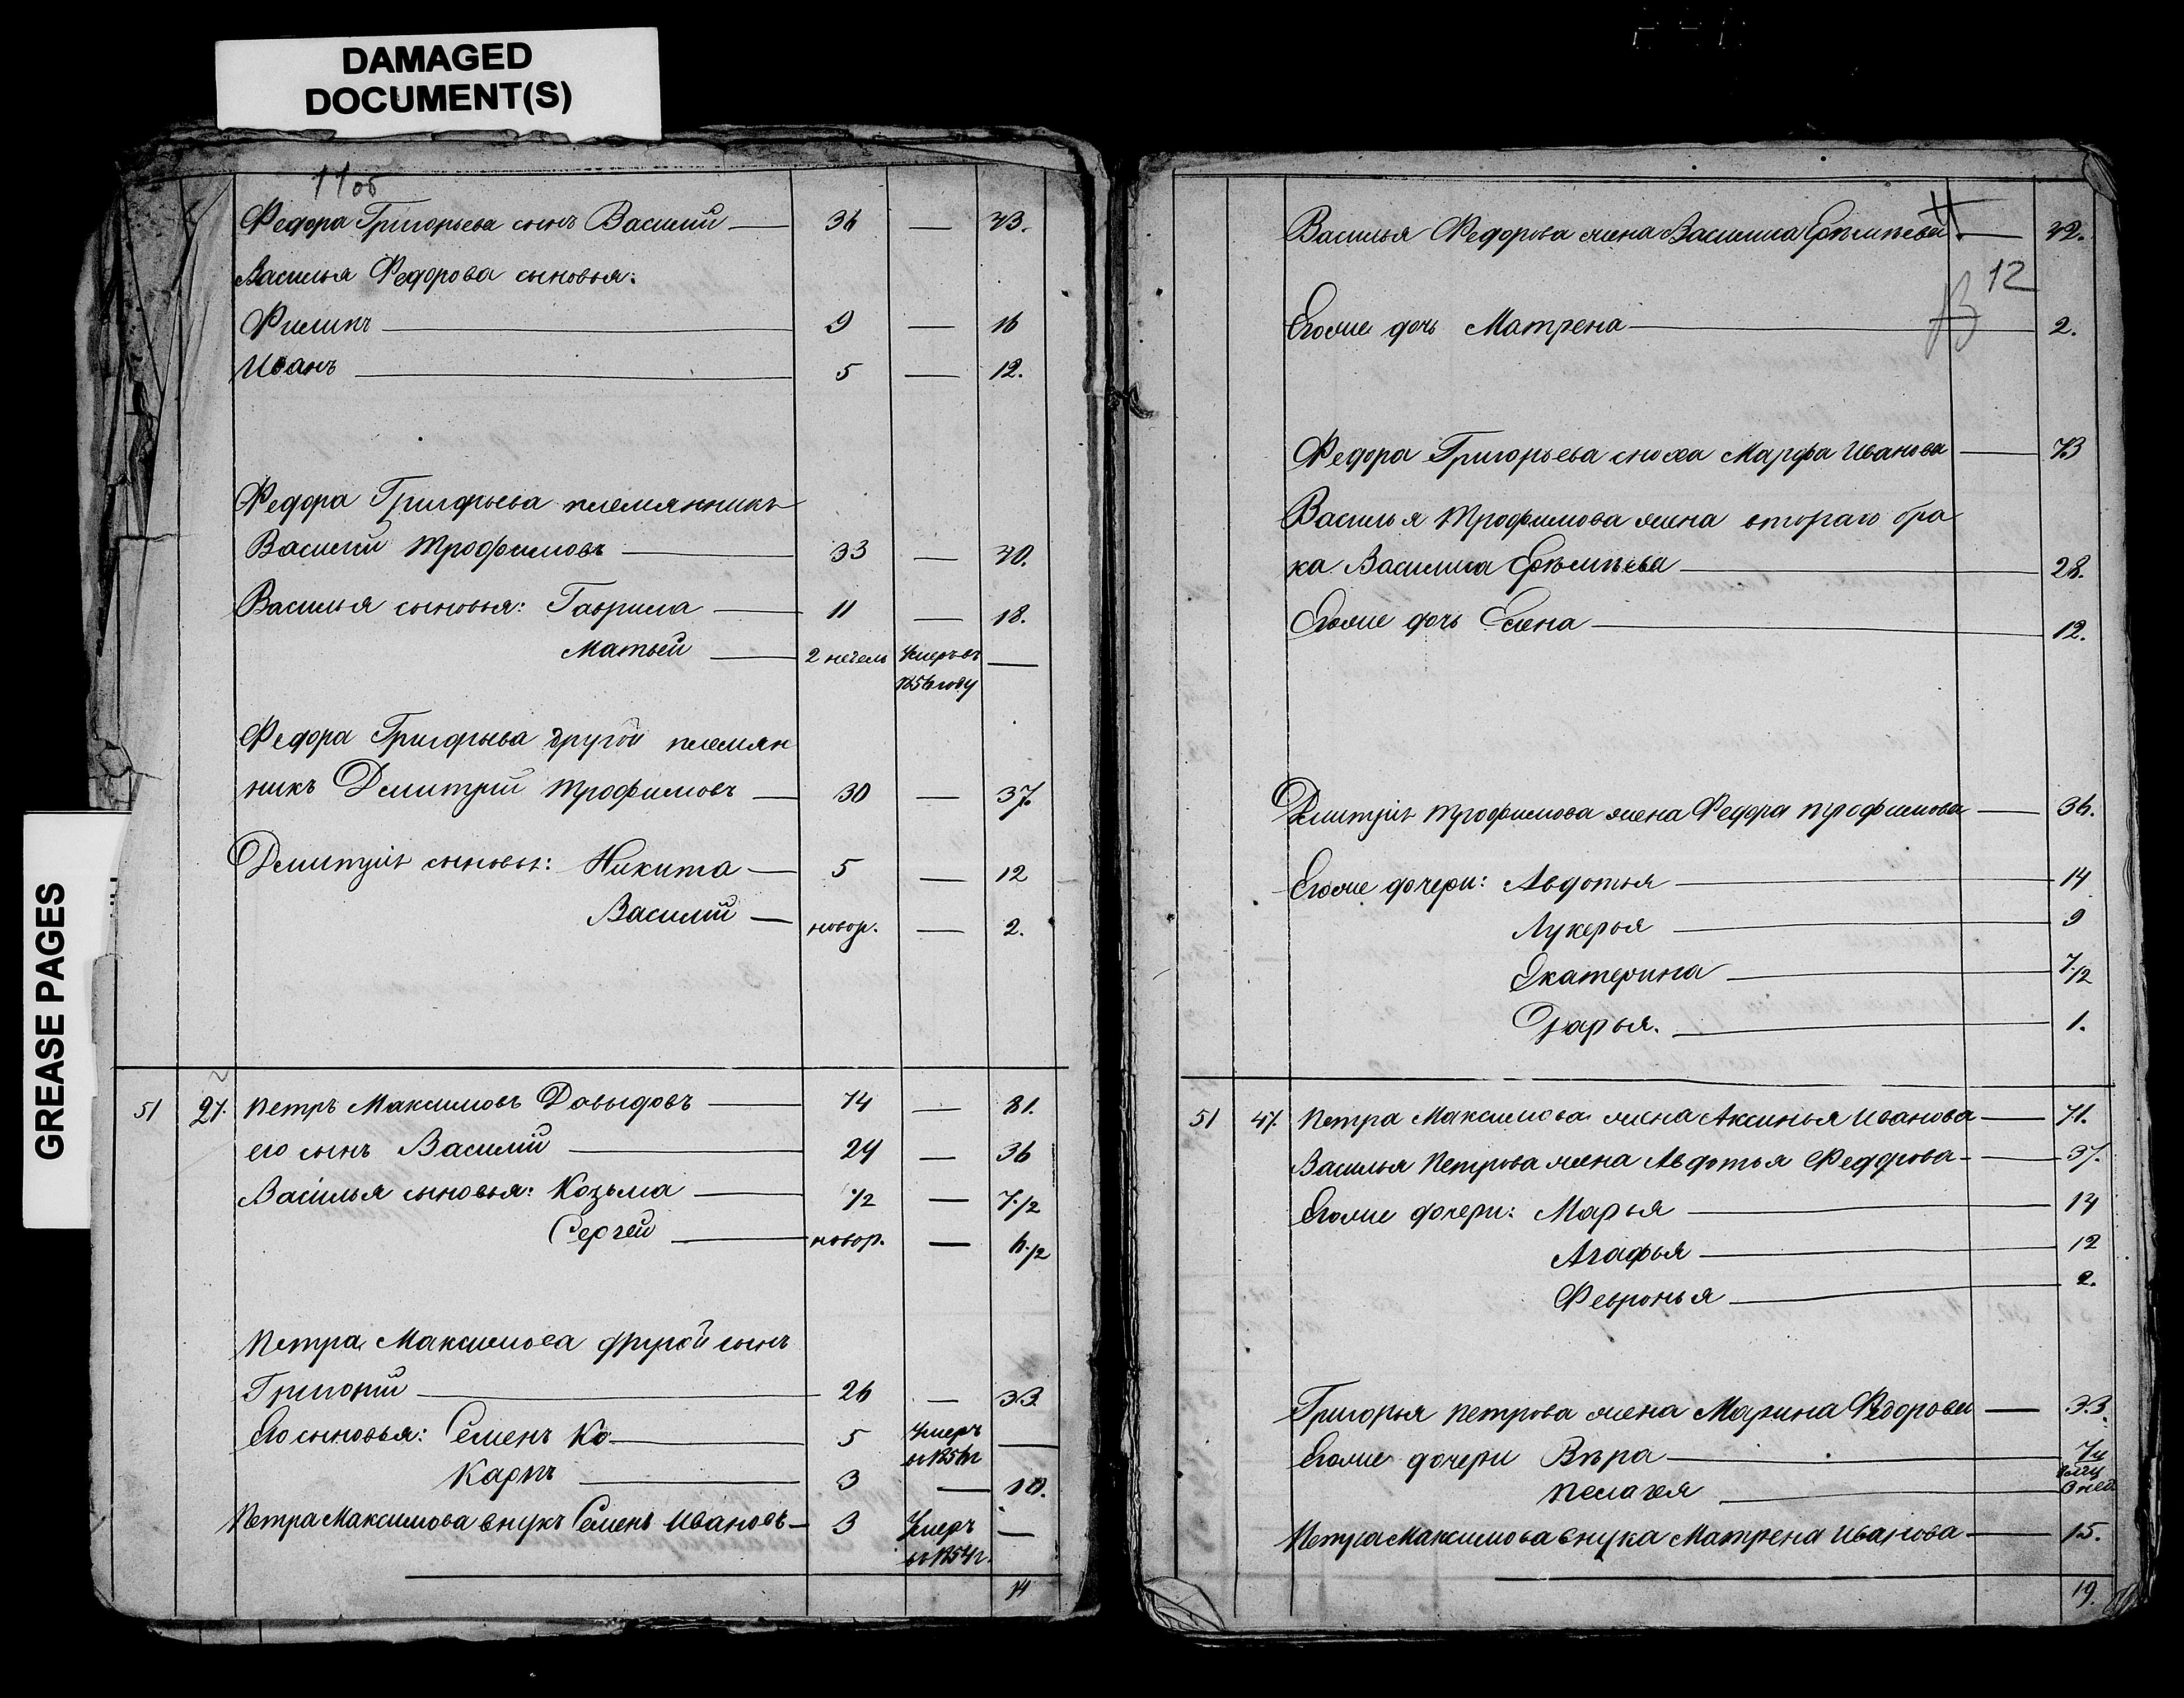 DAMAGED
DOCUMENT(S)
GREASE PAGES
11об
Федора Григорьева сынъ Василий — 36 — 43.
Василья Федорова сыновья:
Филипъ — 9 — 16
Иванъ — 5 — 12.
Федора Григорьева племянникъ
Василий Трофимовъ — 33 — 40.
Василья сыновья: Гаврила — 11 — 18.
Матвей — 2 недель Умеръ въ —
1856 году
Федора Григорьева другой племян
никъ Дмитрий Трофимовъ — 30 — 37.
Дмитрія сыновья: Никита — 5 — 12
Василий — новор. — 2.
51 27. Петръ Максимовъ Давыдовъ — 74 — 81.
его сынъ Василий — 29 — 36
Василья сыновья: Козьма — 1/2 — 7 1/2
Сергей — новор. — 6 1/2
Петра Максимова другой сынъ
Григорий — 26 — 33
Его сыновья: Семенъ Ко — 5 Умеръ —
въ 1856г
Карпъ — 3 — 10.
Петра Максимова внукъ Семенъ Ивановъ — 3 Умеръ —
въ 1854г.
14
11
Василья Федорова жена Василиса Ерѣмѣева — 42.
12
Егоже дочь Матрена — 2.
Федора Григорьева сноха Марфа Иванова — 73
Василья Трофимова жена втораго бра
ка Василиса Ерѣмѣева — 28.
Егоже дочь Елена — 12.
Дмитрія Трофимова жена Федора Трофимова — 36.
Егоже дочери: Авдотья — 14
Лукерья — 9
Екатерина — 7 1/2
Дарья. — 1.
51 47. Петра Максимова жена Аксинья Иванова — 71.
Василья Петрова жена Авдотья Федорова — 37.
Егоже дочери: Марья — 14
Агафья — 12
Февронья — 2.
Григорья Петрова жена Марина Федорова — 33.
Егоже дочери Вѣра —
Пелагея —
Петра Максимова внука Матрена Иванова — 15.
19.